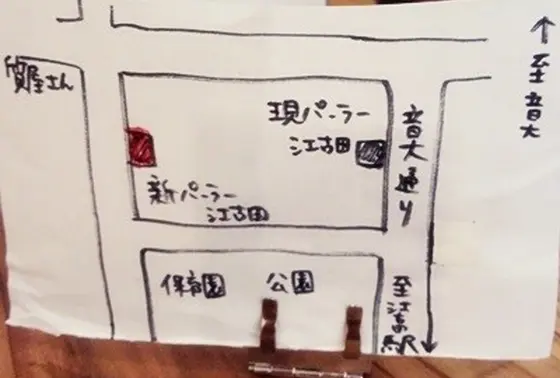 ↑至音大
質屋さん
現パーラー
江古田
音大通り
新パーラー
江古田
保育園
公園
至江古田駅